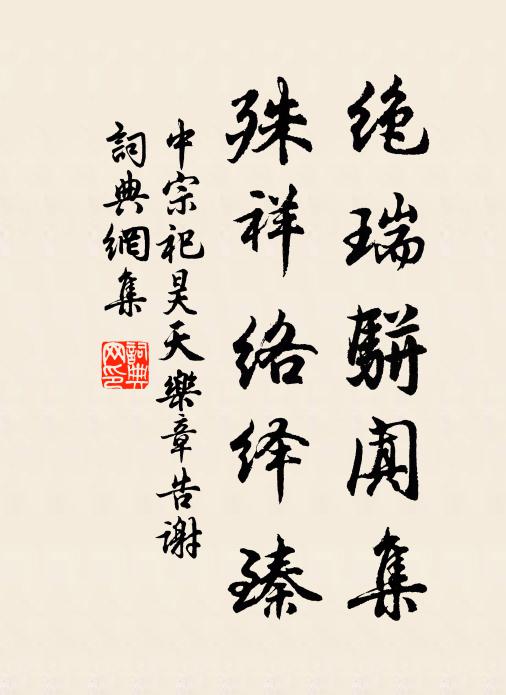 绝瑞駢阗集
殊祥络绎臻
中宗祀昊天樂章告谢
詞典網集
詞典网印